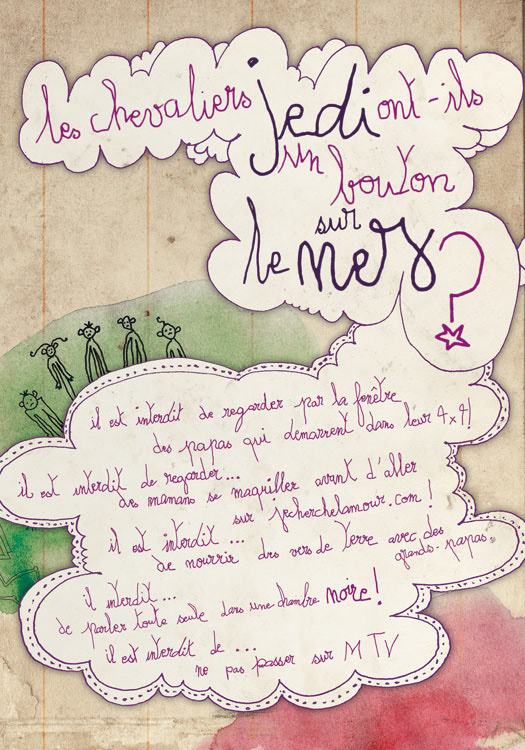 les chevaliers jedi ont-ils
un bouton
sur
le nez ?
il est interdit de regarder par la fenêtre
des papas qui démarrent dans leur 4x4!
il est interdit de regarder...
des mamans se maquiller avant d'aller
sur jecherchelamour.com!
il est interdit ...
de nourrir des vers de terre avec des
grands-papas.
il interdit...
de parler toute seule dans une chambre noire!
il est interdit de ...
ne pas passer sur MTV